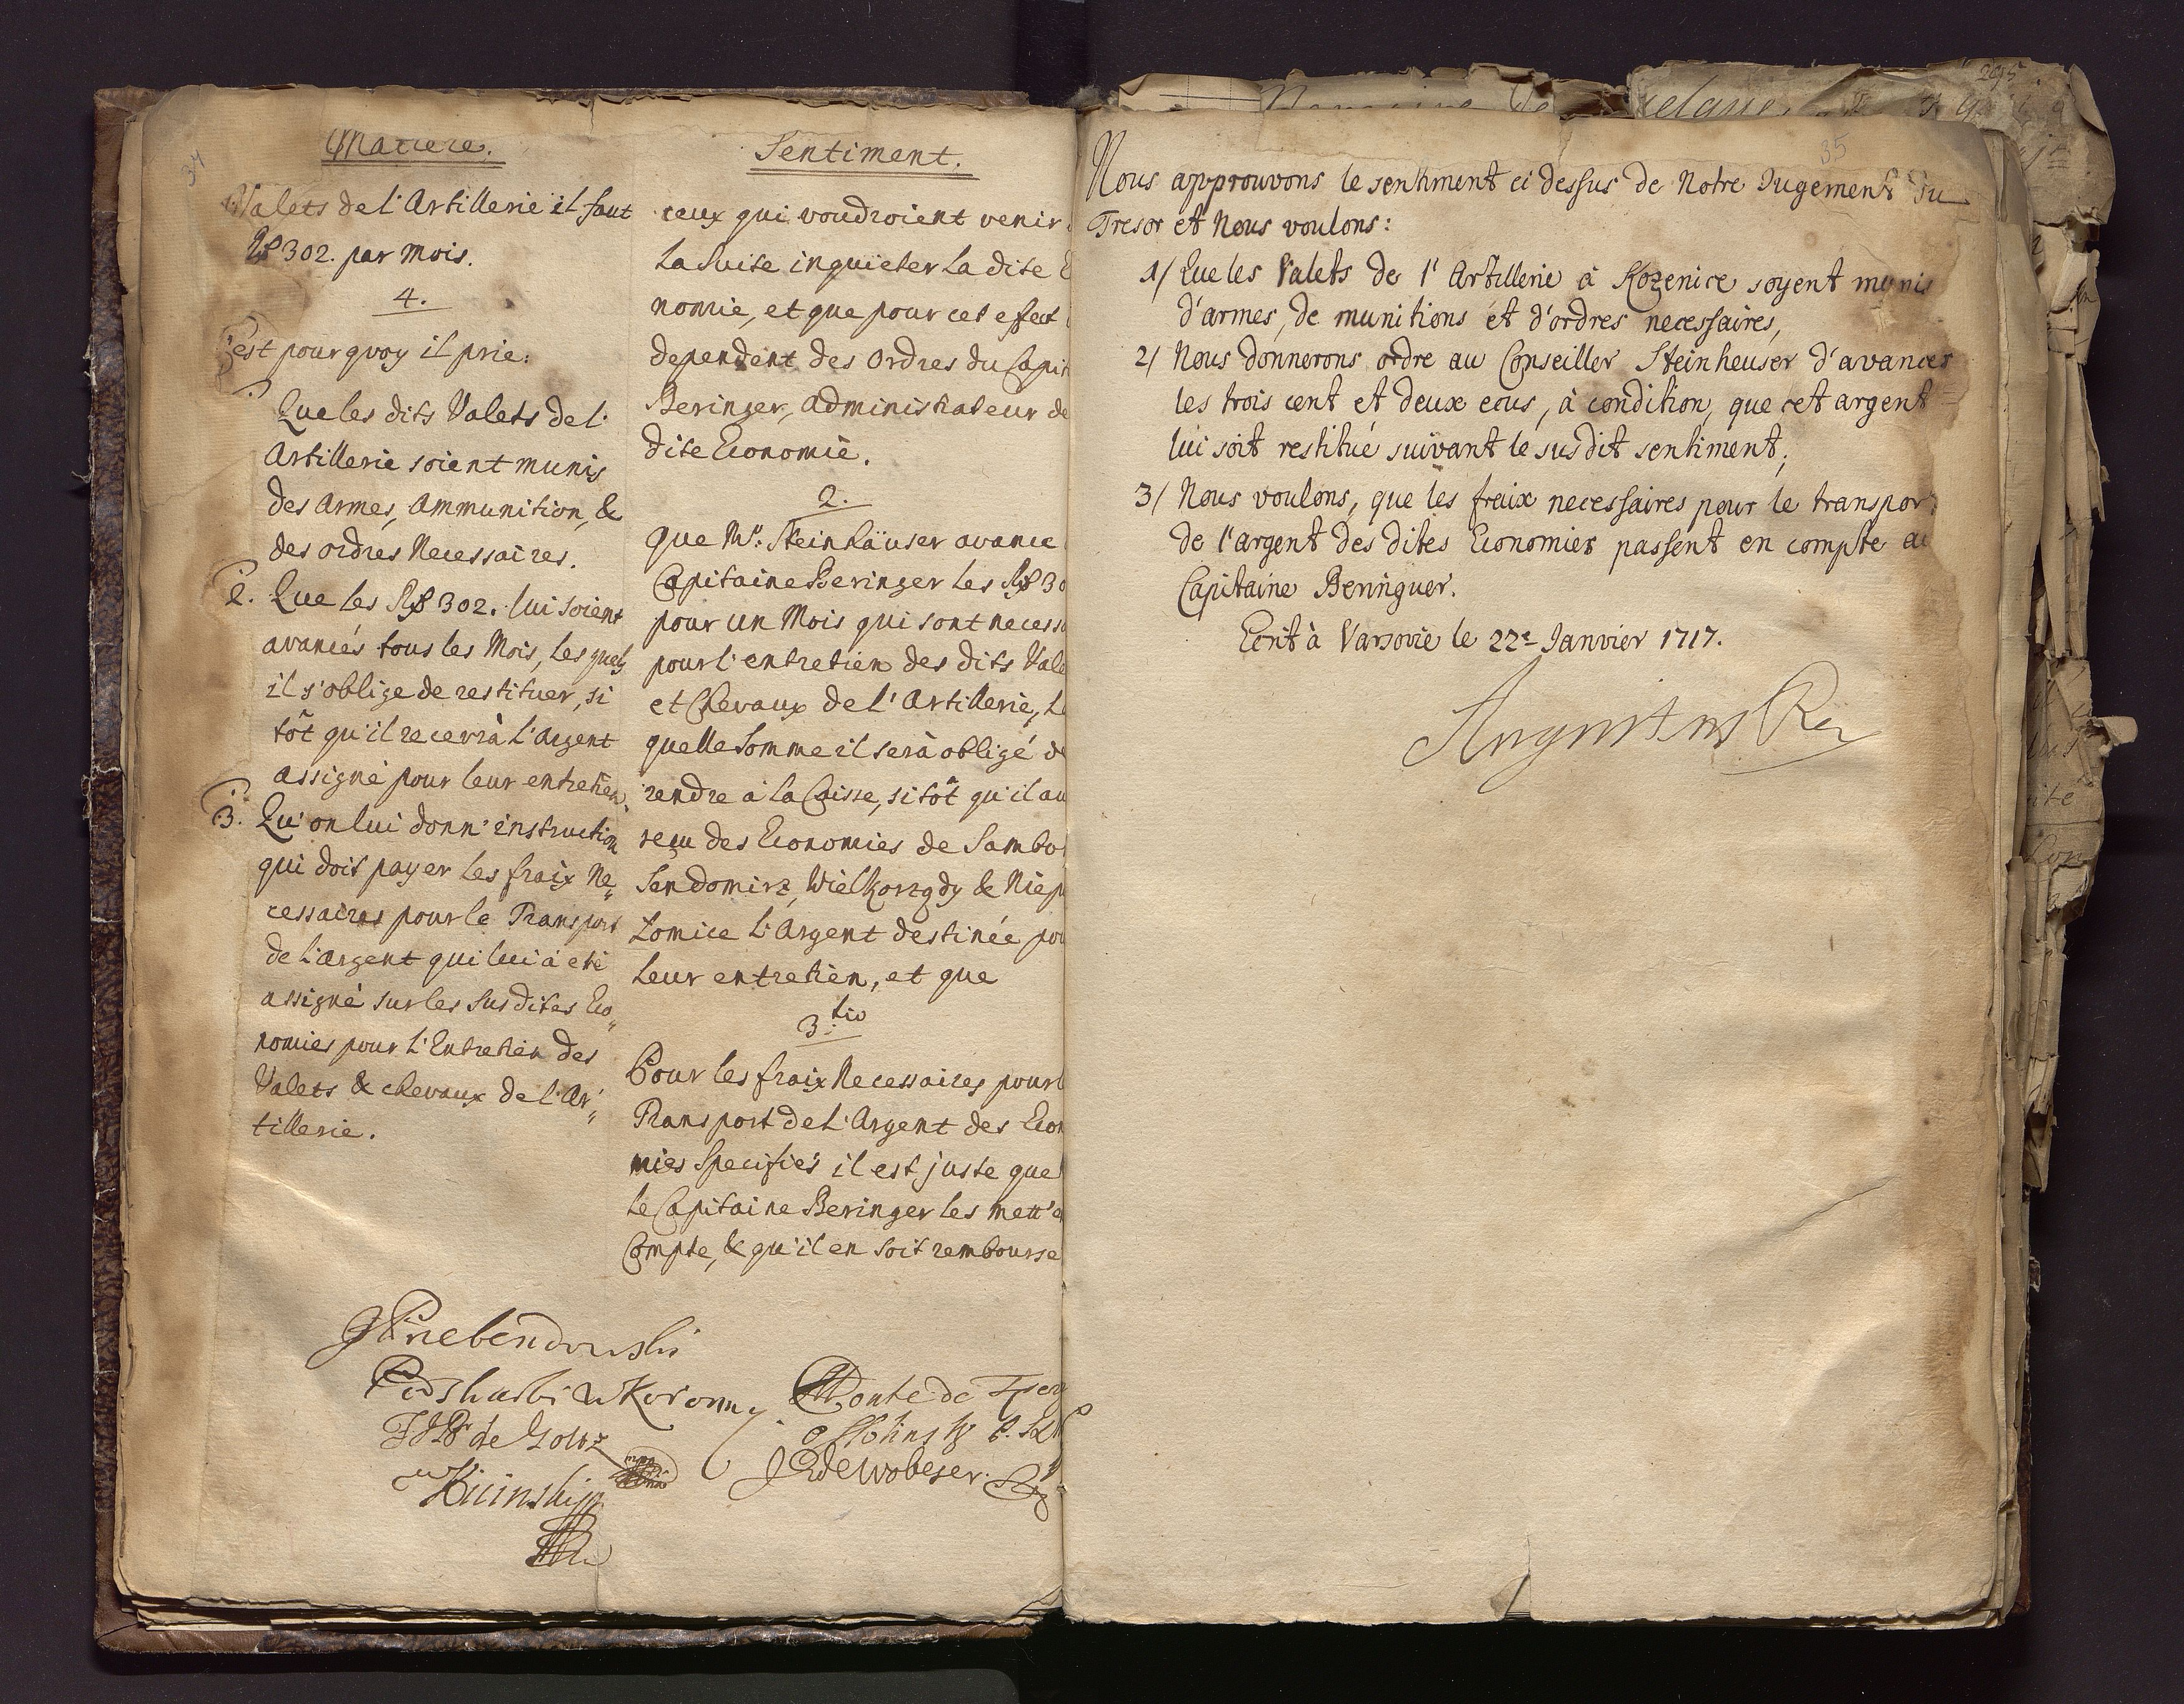 34
Matiere.
Valets de l'Artillerie il faut
302. par Mois.
4.
C'est pourquoy il prie:
Que les dits Valets de l'
Artillerie soient munis
des Armes, Ammunition, &
des ordres Necessaires.
2. Que les 302. lui soient
avancés tous les Mois, les quels
il s'oblige de restituer, si
tôt qu'il recevrà l'Argent
assigné pour leur entretien.
3. Qu'on lui donn' instruction
qui doit payer les fraix Ne„
cessaires pour le Transport
de l'argent qui lui à eté
assigné sur les Susdites Eco„
nomies pour l'Entretien des
Valets & chevaux de l'Ar„
tillerie.
Sentiment.
ceux qui voudroient venir
la Suite inquieter la dite
nomie, et que pour cet effect
dependent des Ordres du Capit
Beringer, administrateur de
dite Economie.
2.
que Mr. Steinhäuser avance
Capitaine Beringer les 30
pour un Mois qui sont necess
pour l'entretien des dits Vale
et Chevaux de l'Artillerie, la
quelle Somme il serà obligé de
rendre à la Caisse, si tôt qu'il au
reçu des Economies de Sambo
Sendomirz, Wielkorzgdy & Niep
Lomice l'Argent destinée pou
leur entretien, et que
3.tio
Pour les fraix Necessaires pour l
Transport de l'Argent des Econ
mies Specifiés il est juste que
le Capitaine Beringer les mett' e
Compte, & qu'il en soit rembourse
JPrebendowski
Podskarbi W Koronny
de Goltz
Kicinski
Conte de
J E de Wobeser.
35
Nous approuvons le sentiment ci dessus de Notre Jugement du
Tresor et Nous voulons:
1/ Que les Valets de l'Artillerie à Kozenice soyent munis
d'armes, de munitions et d'ordres necessaires,
2/ Nous donnerons ordre au Conseiller Steinheuser d'avancer
les trois cent et deux ecus, à condition, que cet argent
lui soit restitué suivant le susdit sentiment;
3/ Nous voulons, que les fraix necessaires pour le transpor
de l'argent des dites Economies passent en compte au
Capitaine Beringuer.
Ecrit à Varsovie le 22e Janvier 1717.
Augustus Rex
295